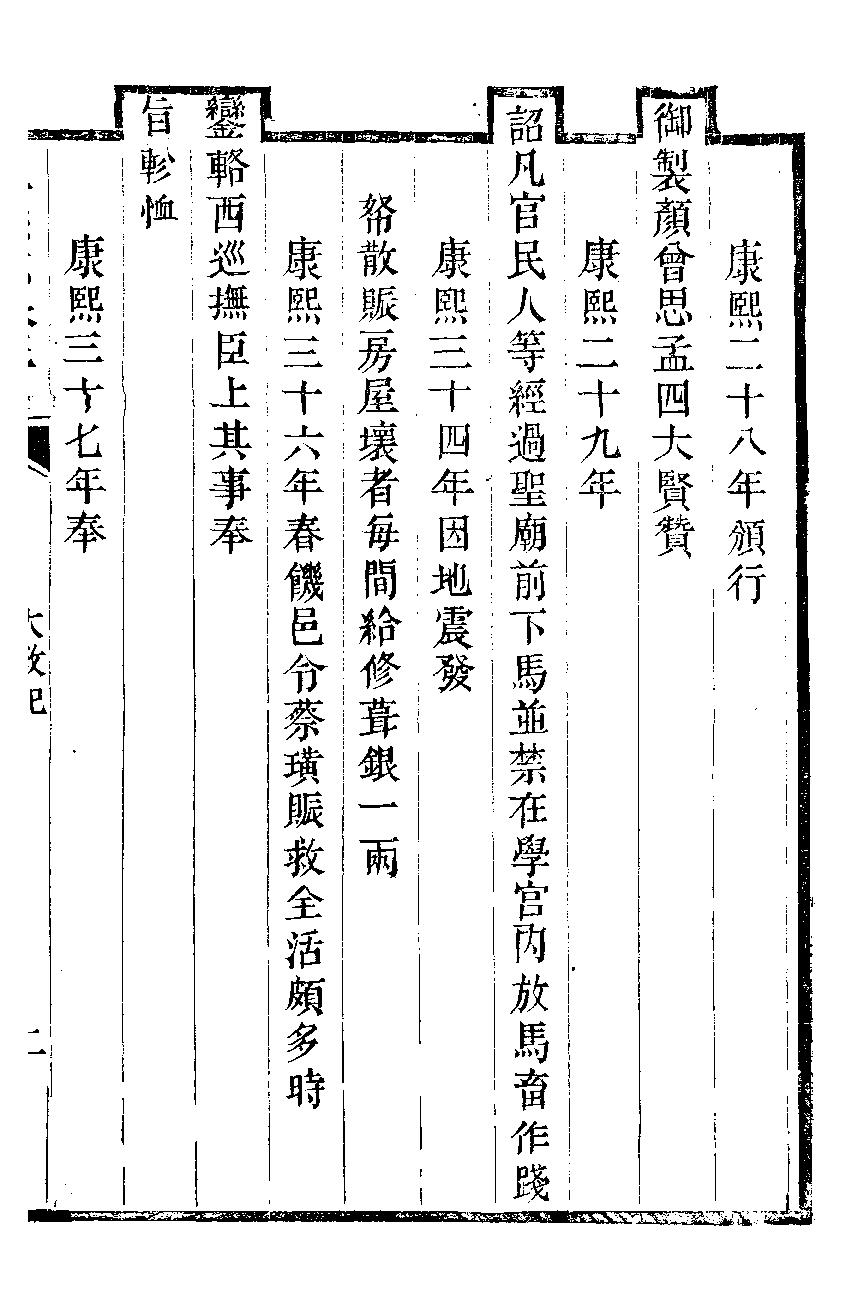 康熙二十八年頒行
御製顏曾思孟四大賢贊
康熙二十九年
詔凡官民人等經過聖廟前下馬並禁在學宫内放馬畜作踐
康熙三十四年因地震發
帑散賑房屋壞者每間給修葺銀一兩
康熙三十六年春饑邑令蔡璜賑救全活頗多時
鑾輅西巡撫臣上其事奉
旨軫恤
康熙三十七年奉
大政記
二